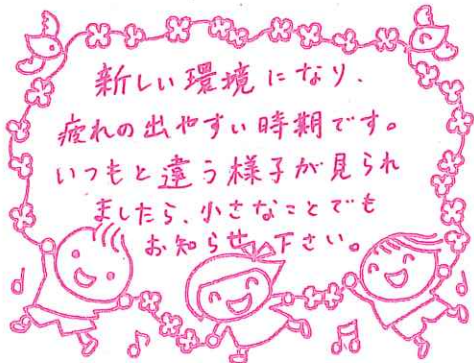 新しい環境になり、
疲れの出やすい時期です。
いつもと違う様子が見られ
ましたら、小さなことでも
お知らせ下さい。